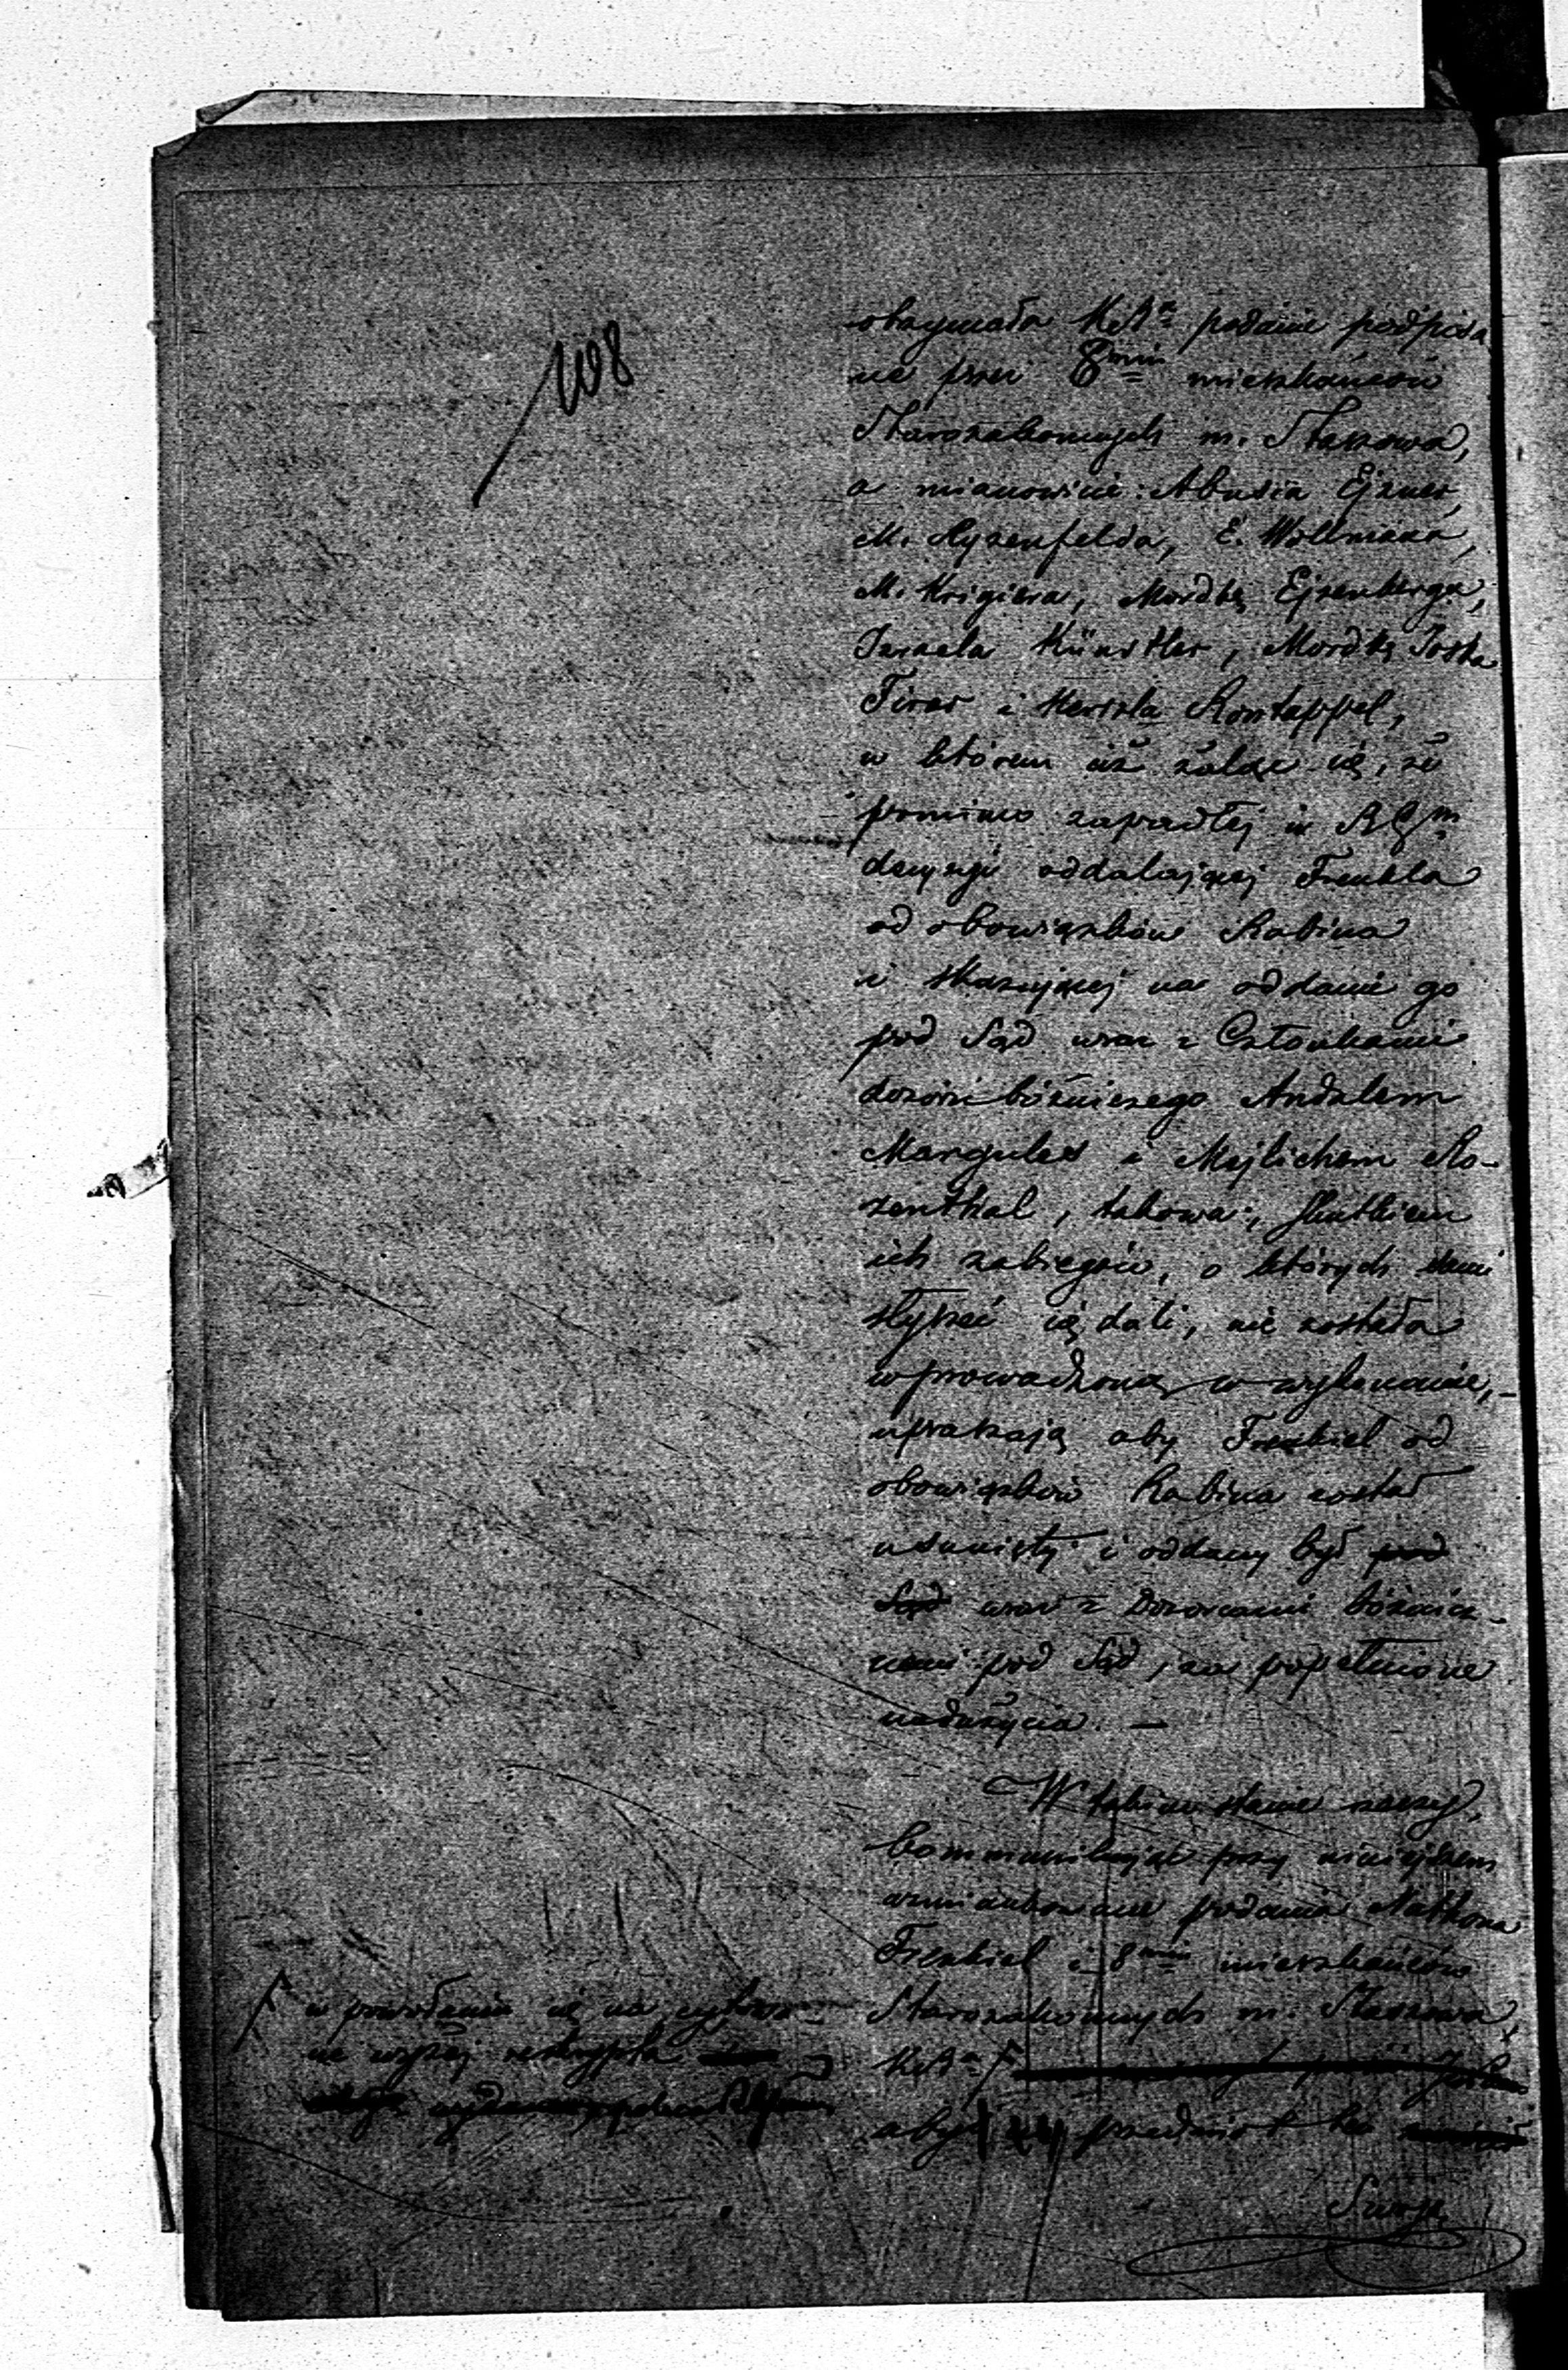 108
otrzymała KRn podanie podpisa
ne przez 8miu mieszkańców
Starozakonnych m. Staszowa,
a mianowicie: Abusia Ejzner,
M. Ryzenfelda, E. Wollmana,
M. Krigiera, Mordkę Ejzenberga,
Izraela Künstler, Mordkę Joska
Firer i Herszla Rontappel,
w którem ciż żalą się, że
pomimo zapadłej w RGm
decyzji oddalającej Frenkla
od obowiązków Rabina
i skazującej na oddanie go
pod Sąd wraz z Członkami
dozoru bóżniczego Andzlem
Margules i Mejlichem Ro-
zenthal, takowa, skutkiem
ich zabiegów, o których sami
słyszeć się dali, nie została
wprowadzoną w wykonanie, -
upraszają aby Frenkiel od
obowiązków Rabina został
usunięty i oddany był pod
Sąd wraz z Dozorcami bóżnicz-
nemi pod Sąd, za popełnione
nadużycia. -
W takim stanie rzeczy,
kommunikując przy niniejszem
wzmiankowane podania Nathana
Frenkiel i 8miu mieszkańców
Starozakonnych m. Staszowa,
KRn
aby przedmiot ten
w powołaniu się na cytowa-
ne wyżej reskrypta